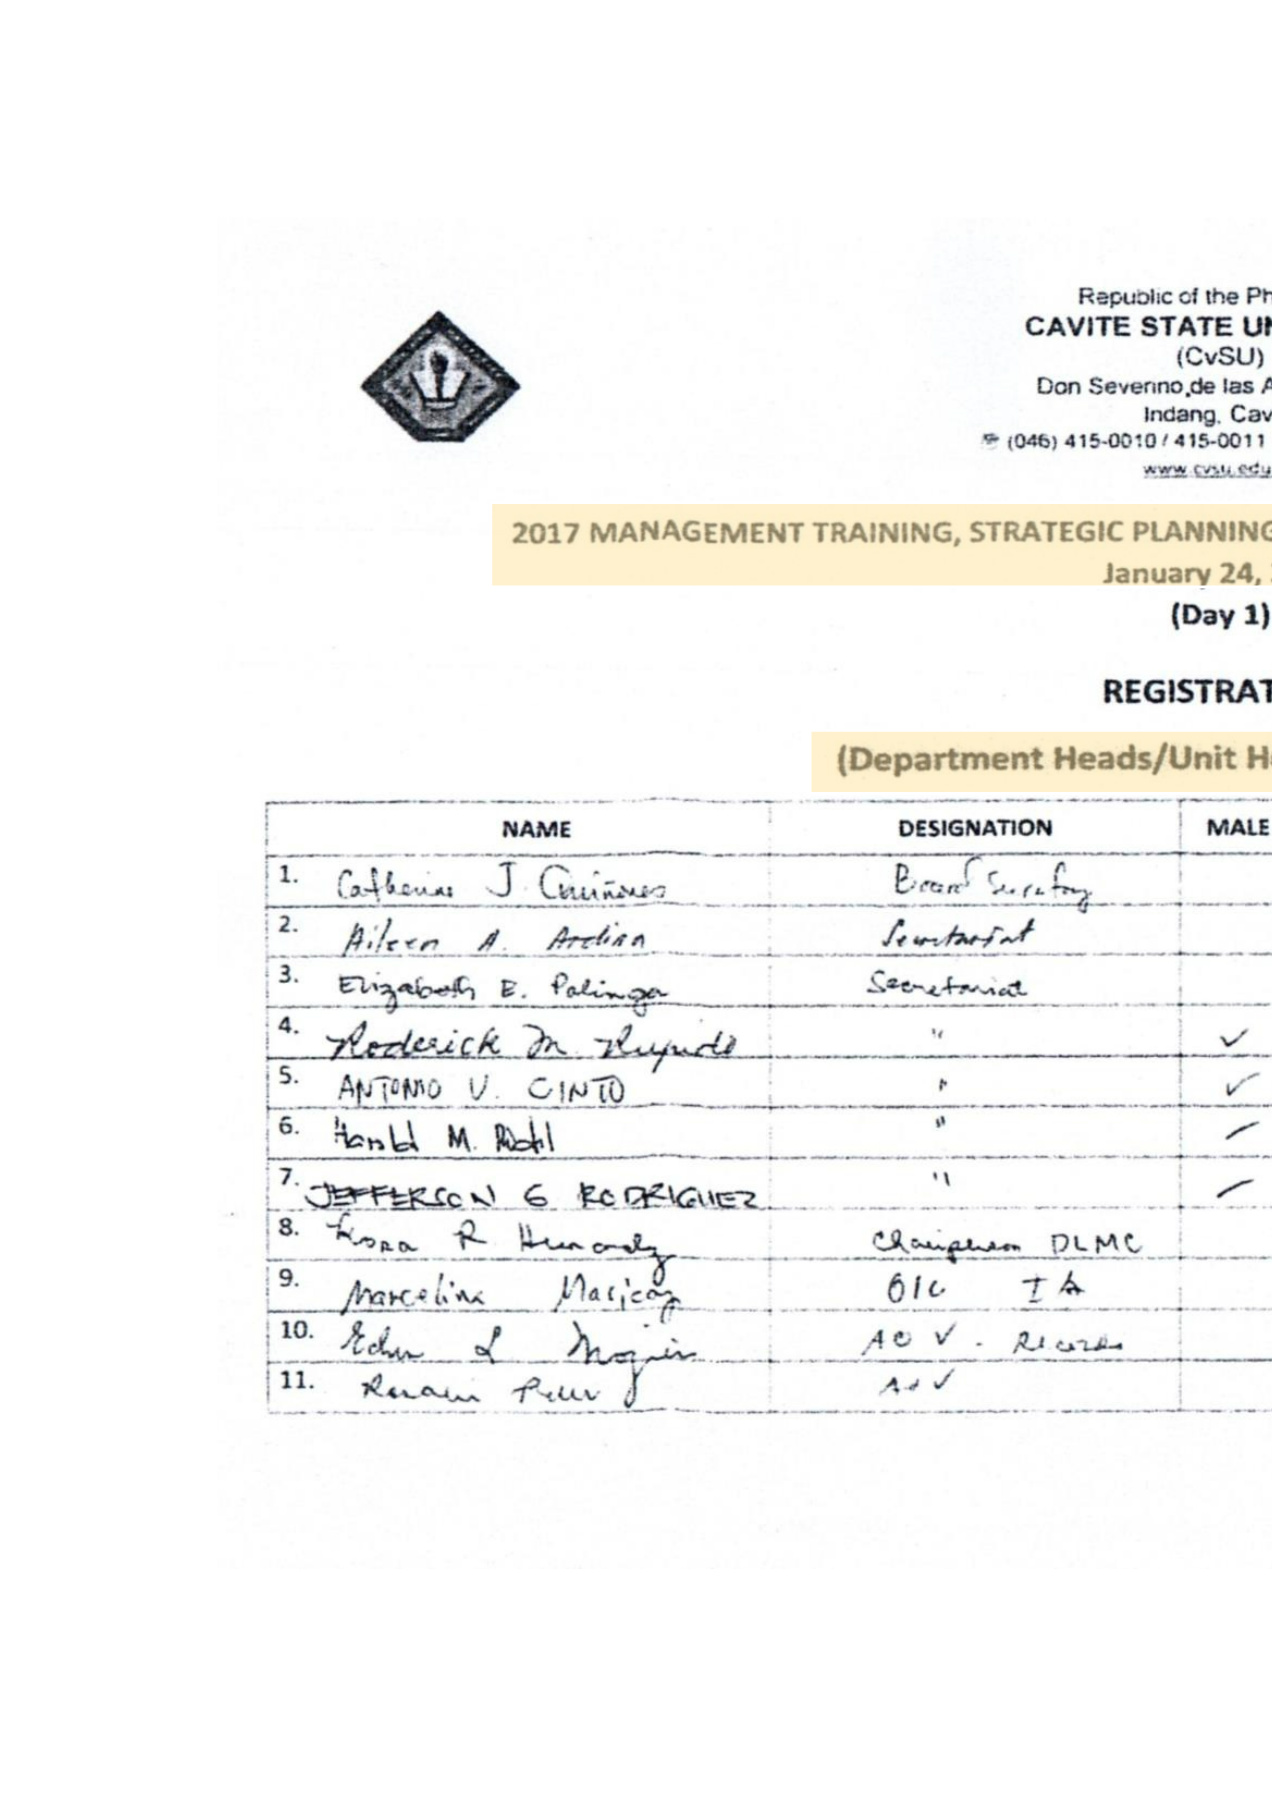 Republic of the Ph
CAVITE STATE UN
(CvSU)
Don Severino de las A
Indang, Cav
(046) 415-0010 / 415-0011
www.cvsu.edu
2017 MANAGEMENT TRAINING, STRATEGIC PLANNING
January 24,
(Day 1)
REGISTRAT
(Department Heads/Unit He
NAME DESIGNATION MALE
1. Catherine J. Quiñones Board Secretary
2. Aileen A. Ardina Secretariat
3. Elizabeth E. Polinga Secretariat
4. Roderick M. " ✓
5. ANTONIO V. CINTO " ✓
6. Harold M. "
7. JEFFERSON G RODRIGUEZ "
8. R. Chairperson DLMC
9. Marcelina OIC IA
10. AO V - Records
11. AO V